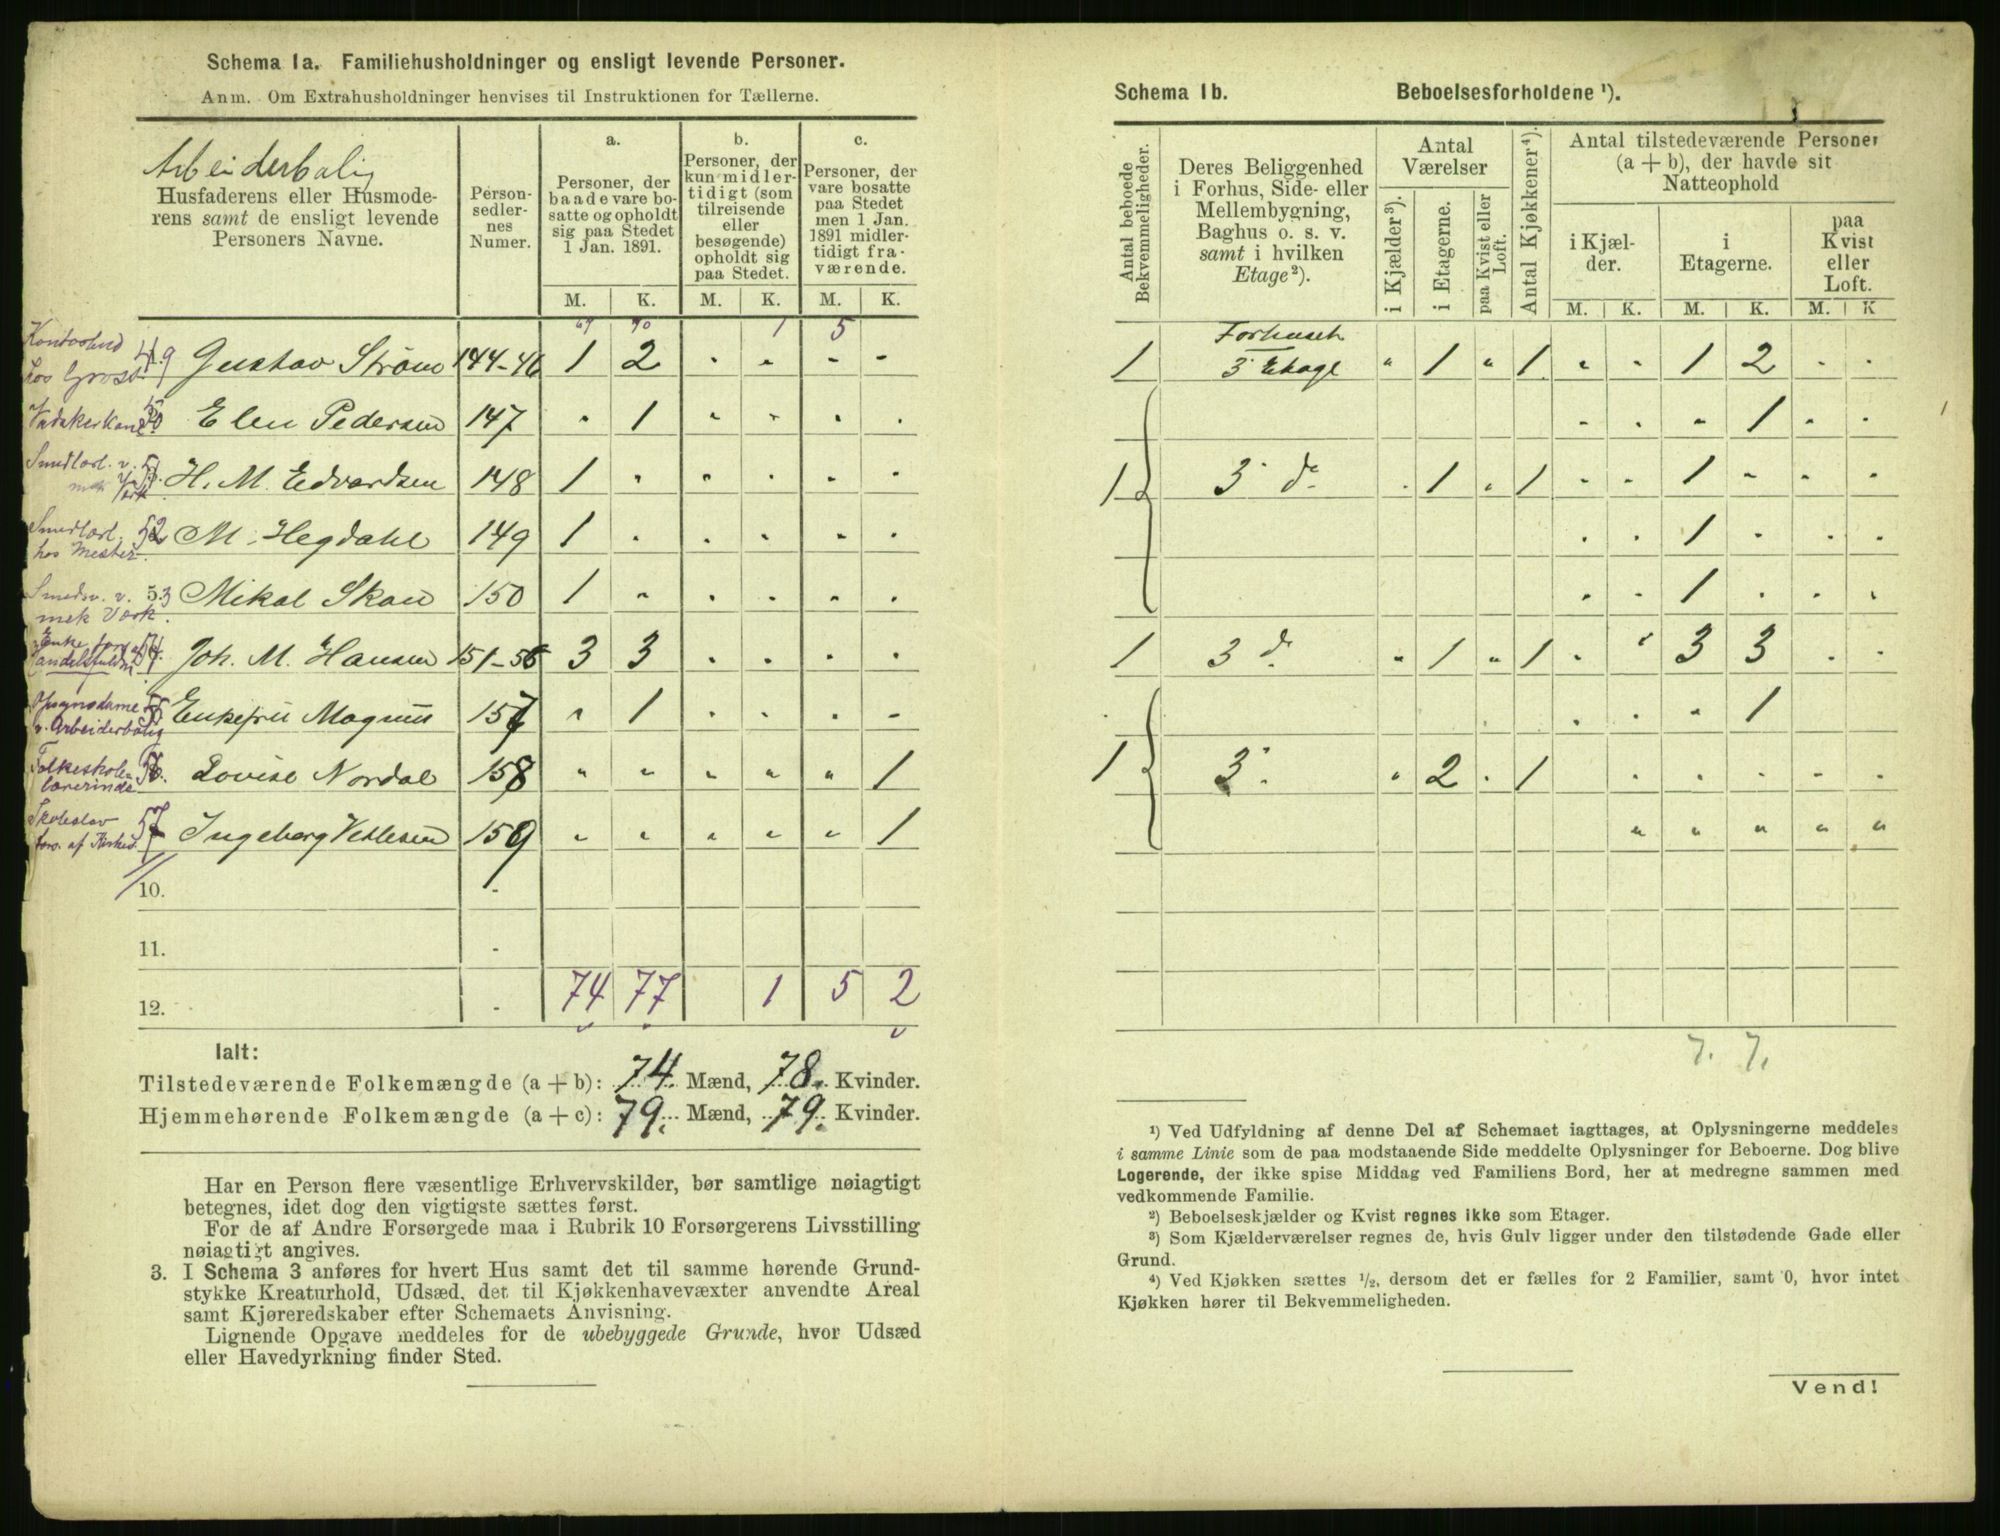 Schema 1a. Familiehusholdninger og ensligt levende Personer.
Anm. Om Extrahusholdninger henvises til Instruktionen for Tællerne.
Arbeiderbolig
Husfaderens eller Husmoderens samt de ensligt levende Personers Navne.
Personsedlernes Numer.
a. Personer, der baade vare bosatte og opholdt sig paa Stedet 1 Jan. 1891.
b. Personer, der kun midlertidigt (som tilreisende eller besøgende) opholdt sig paa Stedet.
c. Personer, der vare bosatte paa Stedet men 1 Jan. 1891 midlertidigt fraværende.
M. K. M. K. M. K.
1 5
49 Gustav Strøm 144-46 1 2 " " - -
50 Elen Pedersen 147 " 1 " " " "
Smedlærl. v. mek Værk 51 H. M. Edvardsen 148 1 " " " " "
Smedlærl. hos Mester. 52 M. Hegdahl 149 1 " " " " "
Smedsv. v. mek Værk. 53 Mikal Skau 150 1 " " " " "
54 Joh. M. Hansen 151-56 3 3 " " " "
v. Arbeiderbolig 55 Enkefru Magnus 157 " 1 " " " "
Folkeskolelærerinde 56. Lovise Nordal 158 " " " " " 1
57 Ingeborg Vetlesen 159 " " " " " 1
10.
11.
12. 74 77 1 5 2
Ialt:
Tilstedeværende Folkemængde (a + b): 74. Mænd, 78. Kvinder.
Hjemmehørende Folkemængde (a + c): 79. Mænd, 79. Kvinder.
Har en Person flere væsentlige Erhvervskilder, bør samtlige nøiagtigt
betegnes, idet dog den vigtigste sættes først.
For de af Andre Forsørgede maa i Rubrik 10 Forsørgerens Livsstilling
nøiagtigt angives.
3. I Schema 3 anføres for hvert Hus samt det til samme hørende Grund-
stykke Kreaturhold, Udsæd, det til Kjøkkenhavevæxter anvendte Areal
samt Kjøreredskaber efter Schemaets Anvisning.
Lignende Opgave meddeles for de ubebyggede Grunde, hvor Udsæd
eller Havedyrkning finder Sted.
Schema 1b. Beboelsesforholdene ¹).
Antal beboede Bekvemmeligheder.
Deres Beliggenhed i Forhus, Side- eller Mellembygning, Baghus o. s. v. samt i hvilken Etage²).
Antal Værelser
i Kjælder³).
i Etagerne.
paa Kvist eller Loft.
Antal Kjøkkener⁴).
Antal tilstedeværende Personer (a + b), der havde sit Natteophold
i Kjælder.
i Etagerne.
paa Kvist eller Loft.
M. K. M. K. M. K
1 Forhuset 3' Etage " 1 " 1 " " 1 2 " "
" " " 1 " "
1 3' do " 1 " 1 " " 1 " " "
" " 1 " " "
" " 1 " " "
1 3 do " 1 " 1 " " 3 3 " "
" " " 1
1 3' " 2 " 1 " " " " "
" " " " "
7. 7.
¹) Ved Udfyldning af denne Del af Schemaet iagttages, at Oplysningerne meddeles
i samme Linie som de paa modstaaende Side meddelte Oplysninger for Beboerne. Dog blive
Logerende, der ikke spise Middag ved Familiens Bord, her at medregne sammen med
vedkommende Familie.
²) Beboelseskjælder og Kvist regnes ikke som Etager.
³) Som Kjælderværelser regnes de, hvis Gulv ligger under den tilstødende Gade eller
Grund.
⁴) Ved Kjøkken sættes ½, dersom det er fælles for 2 Familier, samt 0, hvor intet
Kjøkken hører til Bekvemmeligheden.
Vend!